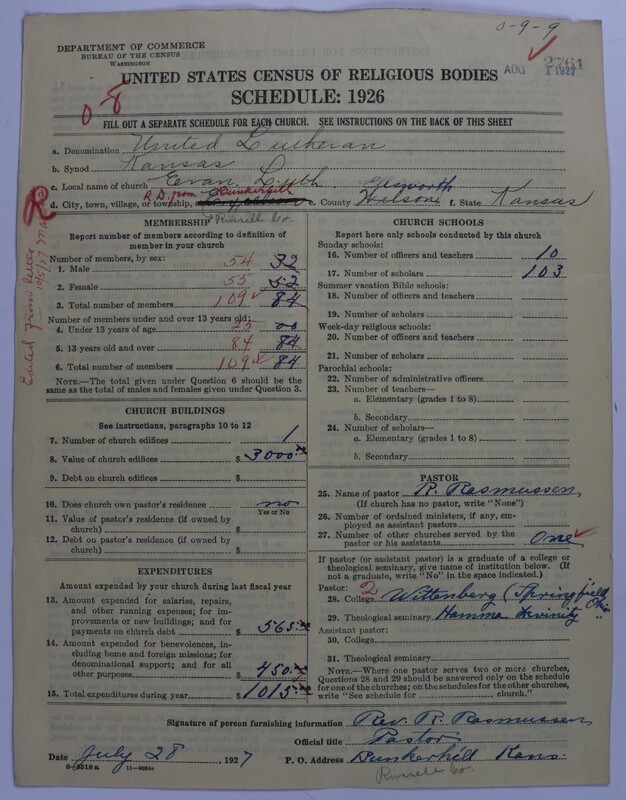 0-9-9
DEPARTMENT OF COMMERCE
BUREAU OF THE CENSUS
WASHINGTON
AUG 1 1927
UNITED STATES CENSUS OF RELIGIOUS BODIES
SCHEDULE: 1926
0-8
FILL OUT A SEPARATE SCHEDULE FOR EACH CHURCH. SEE INSTRUCTIONS ON THE BACK OF THIS SHEET
a. Denomination United Lutheran
b. Synod Kansas
c. Local name of church Evan. Luth
d. City, town, village, or township, R.D. from Bunkerhill e. County Ellsworth Wilson f. State Kansas
Russell Co.
Edited from letter
MEMBERSHIP
Report number of members according to definition of
member in your church
Number of members, by sex:
1. Male 54 32
2. Female 55 52
3. Total number of members 109 84
Number of members under and over 13 years old:
4. Under 13 years of age 25 00
5. 13 years old and over 84 84
6. Total number of members 109 84
NOTE.—The total given under Question 6 should be
the same as the total of males and females given under Question 3.
CHURCH BUILDINGS
See instructions, paragraphs 10 to 12
7. Number of church edifices 1
8. Value of church edifices $ 3000.00
9. Debt on church edifices $
10. Does church own pastor's residence no
Yes or No
11. Value of pastor's residence (if owned by
church) $
12. Debt on pastor's residence (if owned by
church) $
EXPENDITURES
Amount expended by your church during last fiscal year
13. Amount expended for salaries, repairs,
and other running expenses; for im-
provements or new buildings; and for
payments on church debt $ 565.00
14. Amount expended for benevolences, in-
cluding home and foreign missions; for
denominational support; and for all
other purposes $ 450.00
15. Total expenditures during year $ 1015.00
CHURCH SCHOOLS
Report here only schools conducted by this church
Sunday schools:
16. Number of officers and teachers 10
17. Number of scholars 103
Summer vacation Bible schools:
18. Number of officers and teachers
19. Number of scholars
Week-day religious schools:
20. Number of officers and teachers
21. Number of scholars
Parochial schools:
22. Number of administrative officers
23. Number of teachers—
a. Elementary (grades 1 to 8)
b. Secondary
24. Number of scholars—
a. Elementary (grades 1 to 8)
b. Secondary
PASTOR
25. Name of pastor R. Rasmussen
(If church has no pastor, write "None")
26. Number of ordained ministers, if any, em-
ployed as assistant pastors
27. Number of other churches served by the
pastor or his assistants One
If pastor (or assistant pastor) is a graduate of a college or
theological seminary, give name of institution below. (If
not a graduate, write "No" in the space indicated.)
Pastor: 2
28. College Wittenberg (Springfield Ohio
29. Theological seminary Hamma Divinity "
Assistant pastor:
30. College
31. Theological seminary
NOTE.—Where one pastor serves two or more churches,
Questions 28 and 29 should be answered only on the schedule
for one of the churches; on the schedules for the other churches,
write "See schedule for church."
Signature of person furnishing information Rev. R. Rasmussen
Official title Pastor
Date July 28 1927 P. O. Address Bunkerhill Kans.
8-5318a
Russell Co.